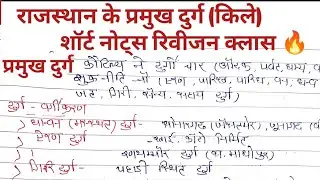 राजस्थान के प्रमुख दुर्ग (किले)
शॉर्ट नोट्स रिवीजन क्लास 🔥
प्रमुख दुर्ग कौटिल्य ने दुर्गो चार (औदक, पर्वत, धान्व, व
शुक्र नीति - नौ (एरण, पारिख, पारिघ, वन, धन्व
जल, गिरी, सैन्य, सहाय दुर्ग)
दुर्ग - वर्गीकरण
धान्वन (मरुस्थल) दुर्ग - सोनारगढ़ (जैसलमेर), भूपतगढ़
ऐरण दुर्ग - खाई, कांटो निर्मित
रणथम्भौर दुर्ग (स. माधोपुर)
गिरि दुर्ग - पहाड़ी स्थित दुर्ग